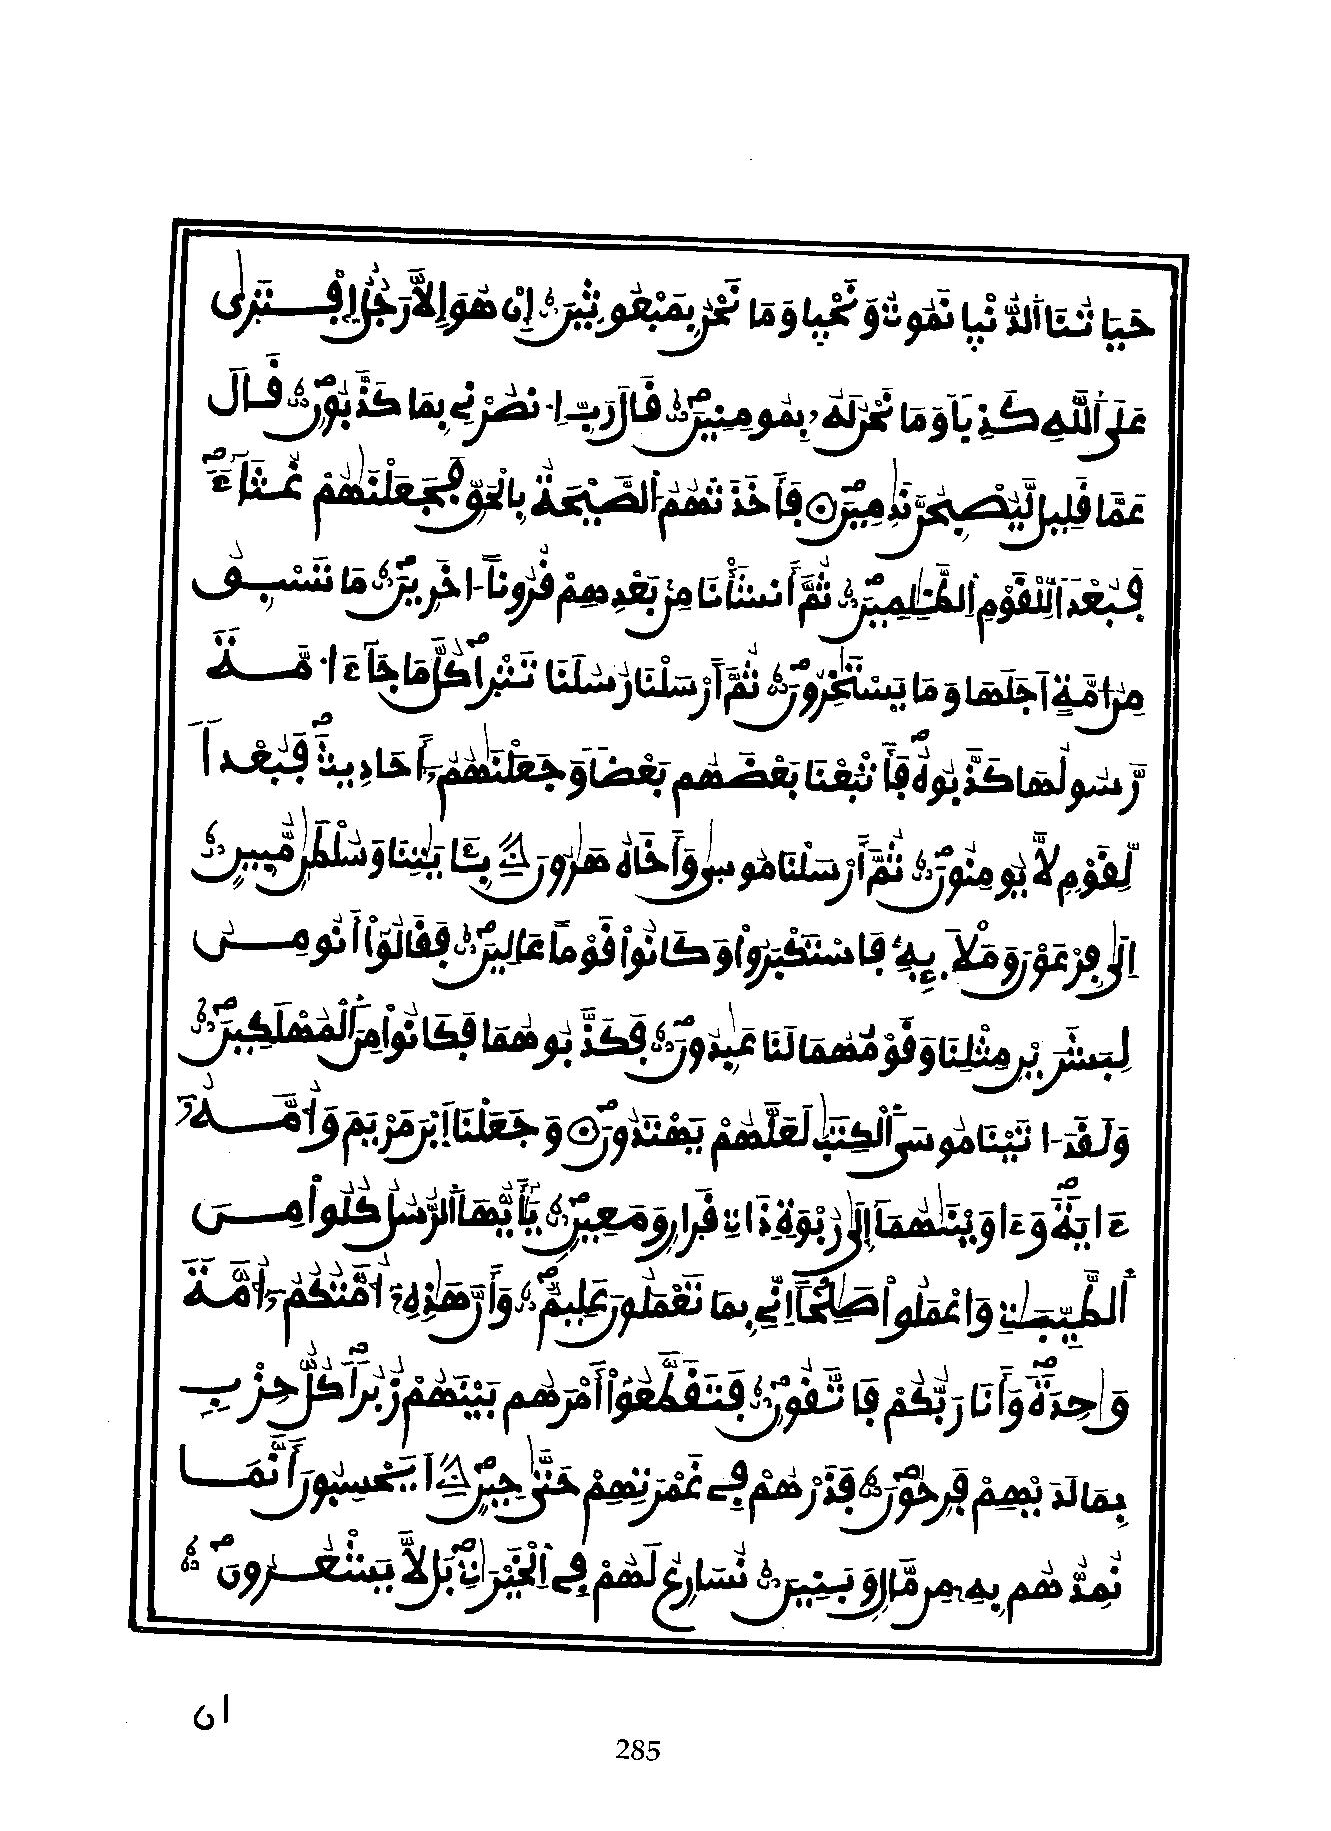 حَيَاتُنَا اَ۬لدُّنْيَا نَمُوتُ وَنَحْيَا وَمَا نَحْنُ بِمَبْعُوثِينَ إِنْ هُوَ إِلَّا رَجُلٌ اِ۪فْتَرَىٰ
عَلَى اَ۬للَّهِ كَذِباٗ وَمَا نَحْنُ لَهُۥ بِمُومِنِينَ قَالَ رَبِّ اِ۟نصُرْنِے بِمَا كَذَّبُونِ قَالَ
عَمَّا قَلِيلٖ لَّيُصْبِحُنَّ نَٰدِمِينَ ۝ فَأَخَذَتْهُمُ اُ۬لصَّيْحَةُ بِالْحَقِّ فَجَعَلْنَٰهُمْ غُثَآءٗ
فَبُعْداٗ لِّلْقَوْمِ اِ۬لظَّٰلِمِينَ ثُمَّ أَنشَأْنَا مِنۢ بَعْدِهِمْ قُرُوناً اٰخَرِينَ مَا تَسْبِقُ
مِنُ ا۟مَّةٍ اَجَلَهَا وَمَا يَسْتَٰخِرُونَ ثُمَّ أَرْسَلْنَا رُسُلَنَا تَتْرَا كُلَّ مَا جَآءَ ا۟مَّةٗ
رَّسُولُهَا كَذَّبُوهُ فَأَتْبَعْنَا بَعْضَهُم بَعْضاٗ وَجَعَلْنَٰهُمُۥٓ أَحَادِيثَ فَبُعْداٗ
لِّقَوْمٖ لَّا يُومِنُونَ ثُمَّ أَرْسَلْنَا مُوسَىٰ وَأَخَاهُ هَٰرُونَ بِـَٔايَٰتِنَا وَسُلْطَٰنٖ مُّبِينٍ
اِلَىٰ فِرْعَوْنَ وَمَلَإِيْهِۦ فَاسْتَكْبَرُواْ وَكَانُواْ قَوْماً عَالِينَ فَقَالُوٓاْ أَنُومِنُ
لِبَشَرَيْنِ مِثْلِنَا وَقَوْمُهُمَا لَنَا عَٰبِدُونَ فَكَذَّبُوهُمَا فَكَانُواْ مِنَ اَ۬لْمُهْلَكِينَ
وَلَقَدَ اٰتَيْنَا مُوسَى اَ۬لْكِتَٰبَ لَعَلَّهُمْ يَهْتَدُونَ ۝ وَجَعَلْنَا اَ۪بْنَ مَرْيَمَ وَأُمَّهُۥٓ
ءَايَةٗ وَءَاوَيْنَٰهُمَآ إِلَىٰ رُبْوَةٖ ذَاتِ قَرَارٖ وَمَعِينٖ يَٰٓأَيُّهَا اَ۬لرُّسُلُ كُلُواْ مِنَ
اَ۬لطَّيِّبَٰتِ وَاعْمَلُواْ صَٰلِحاً اِنِّے بِمَا تَعْمَلُونَ عَلِيمٞ وَأَنَّ هَٰذِهِۦٓ أُمَّتُكُمُۥٓ أُمَّةٗ
وَٰحِدَةٗ وَأَنَا رَبُّكُمْ فَاتَّقُونِ فَتَقَطَّعُوٓاْ أَمْرَهُم بَيْنَهُمْ زُبُراٗ كُلُّ حِزْبِۢ
بِمَا لَدَيْهِمْ فَرِحُونَ فَذَرْهُمْ فِے غَمْرَتِهِمْ حَتَّىٰ حِينٍ اَيَحْسِبُونَ أَنَّمَا
نُمِدُّهُم بِهِۦ مِن مَّالٖ وَبَنِينَ نُسَارِعُ لَهُمْ فِے اِ۬لْخَيْرَٰتِ بَل لَّا يَشْعُرُونَ
ان
285